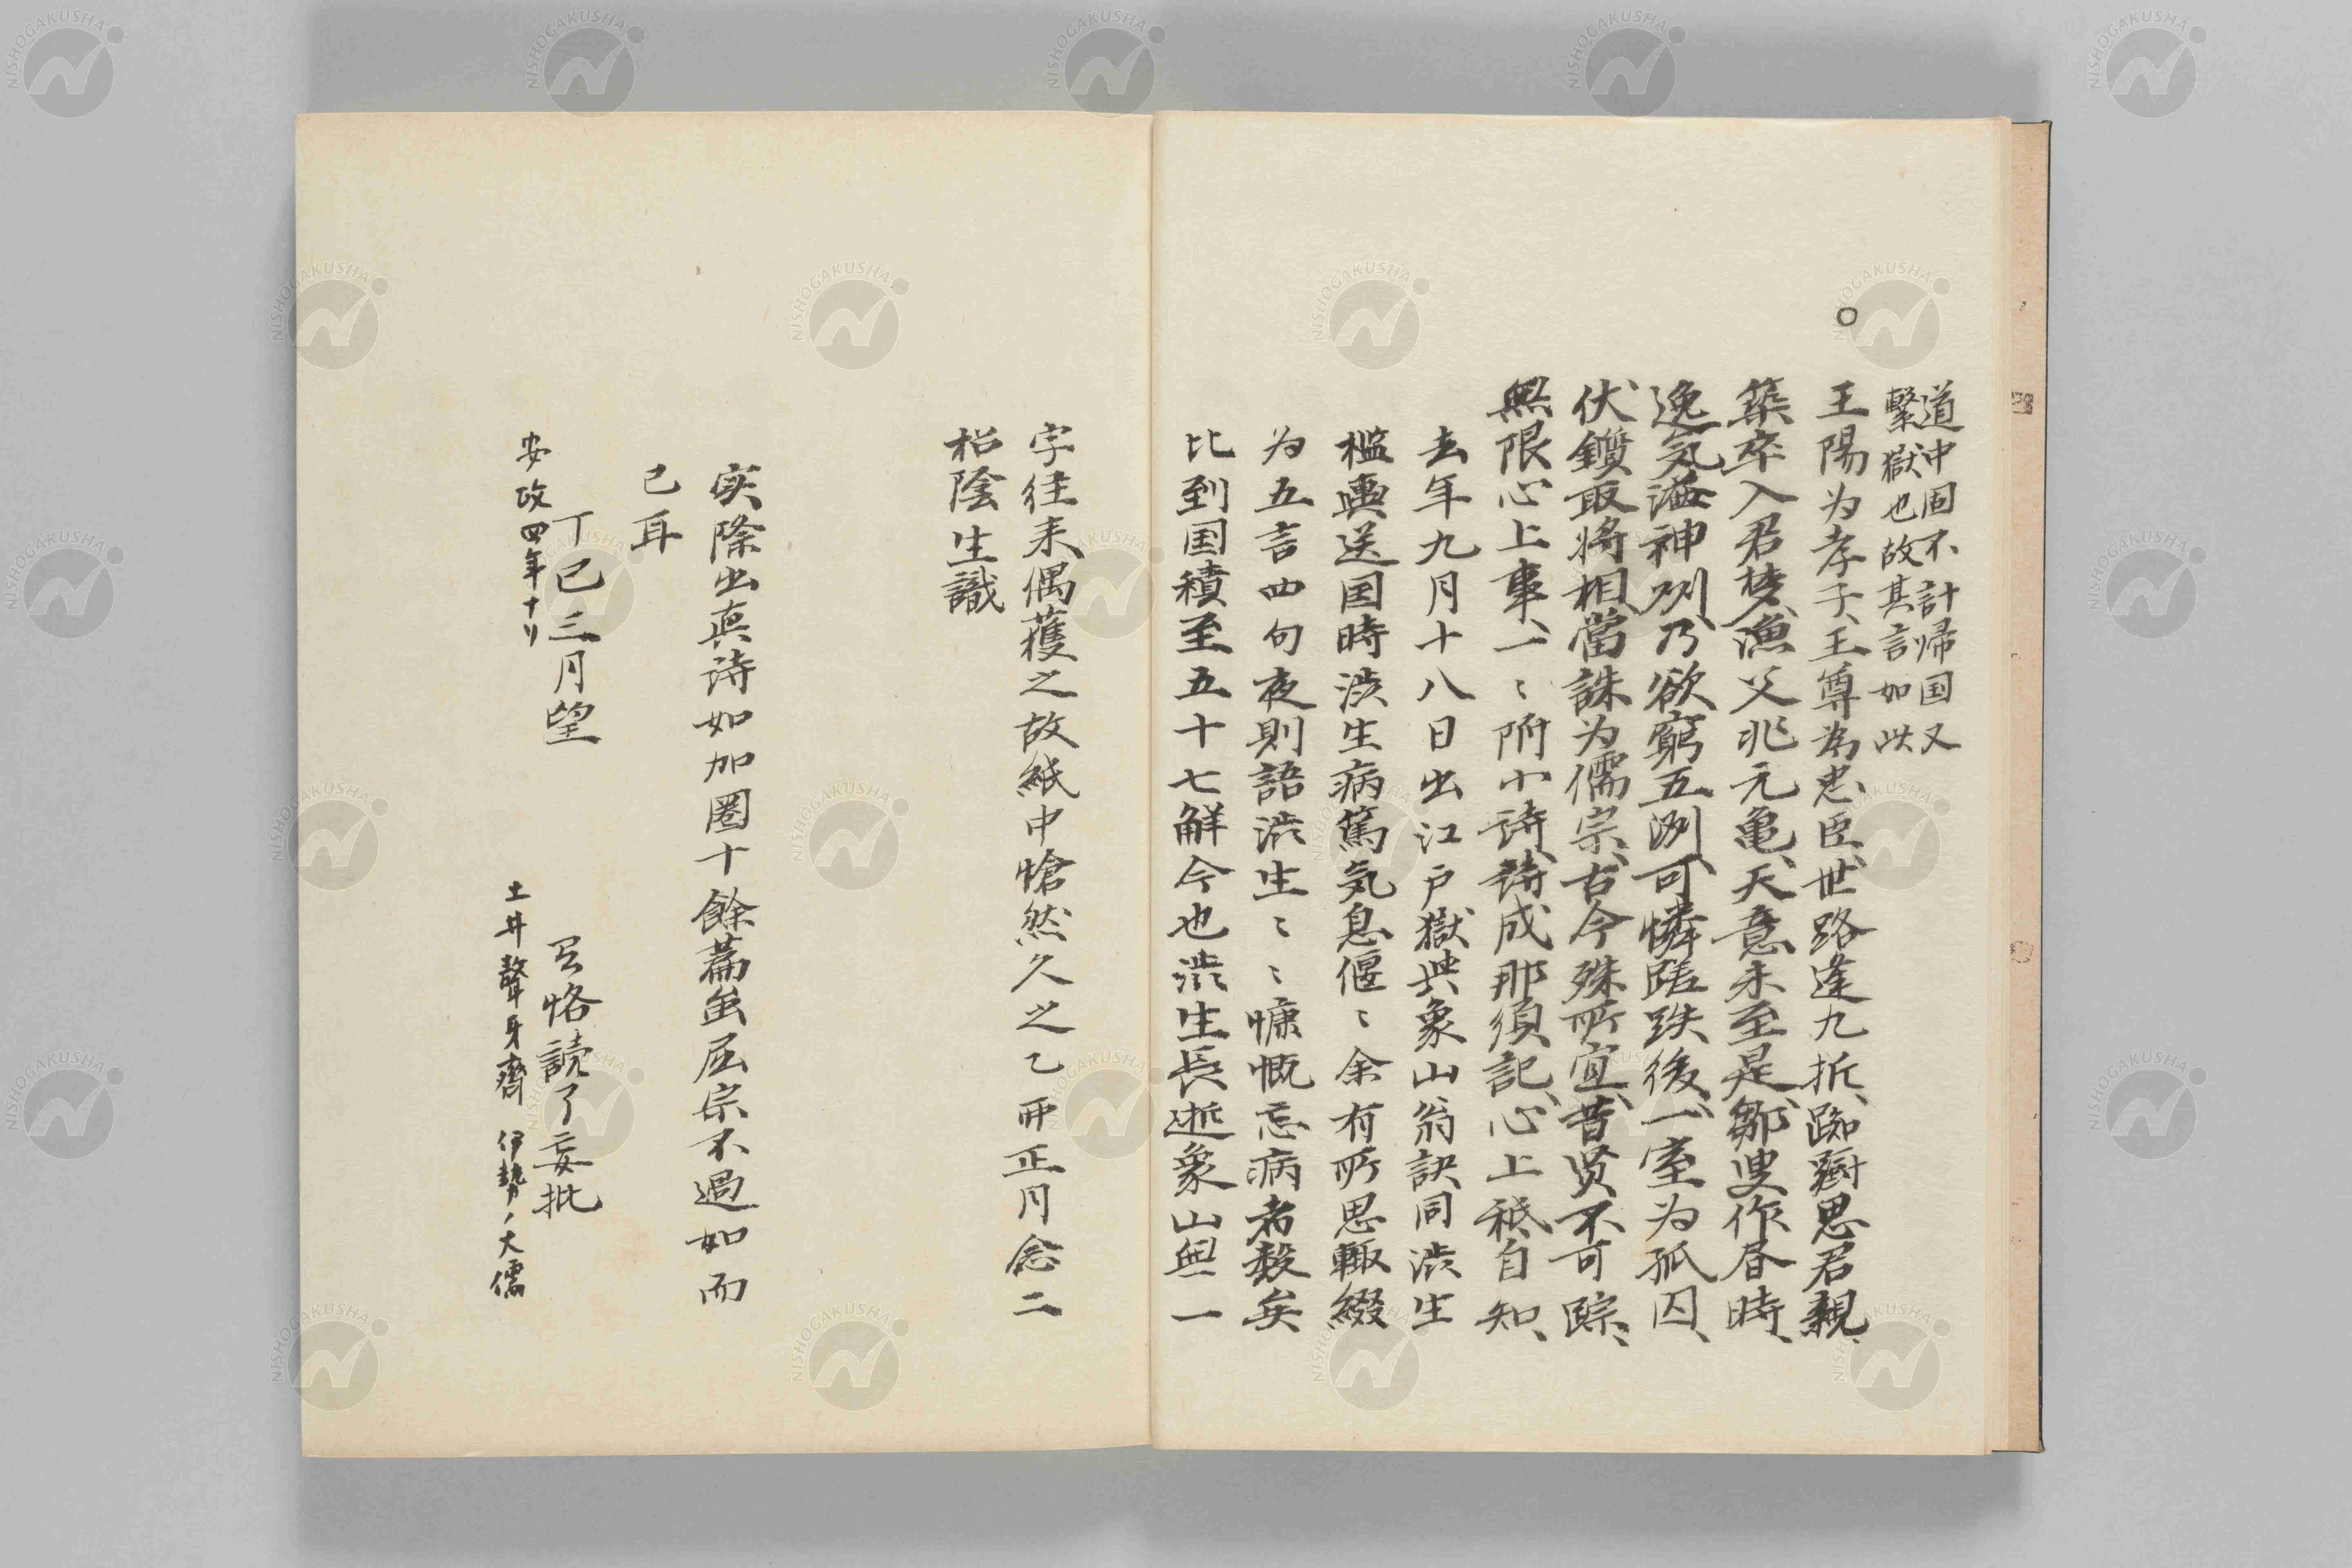 道中固不計帰国又
繫獄也故其言如此
○
王陽为孝子、王尊為忠臣、世路逢九折、踟躕思君親、
築卒入君夢、漁父兆元亀、天意未至是、鄒叟作昏時、
逸気溢神州、乃欲窮五洲、可憐踣跌後、一室为孤囚、
伏鑕取將相、當誅为儒宗、古今殊所宜、昔贤不可踪、
無限心上事、一〻附小詩、詩成那須記、心上秪自知、
去年九月十八日出江戸獄與象山翁訣同渋生
檻輿送国時渋生病篤気息偃〻余有所思輙綴
为五言四句夜則語渋生〻〻慷慨忘病者数矣
比到国積至五十七解今也渋生長逝象山與一
字往来偶獲之故紙中愴然久之乙卯正月念二
松陰生識
実際出真詩如加圏十餘篇虽屈宗不過如而
已耳
丁巳三月望
妄批
安政四年ナリ
土井聱牙齋 伊勢ノ大儒
NISHOGAKUSHA